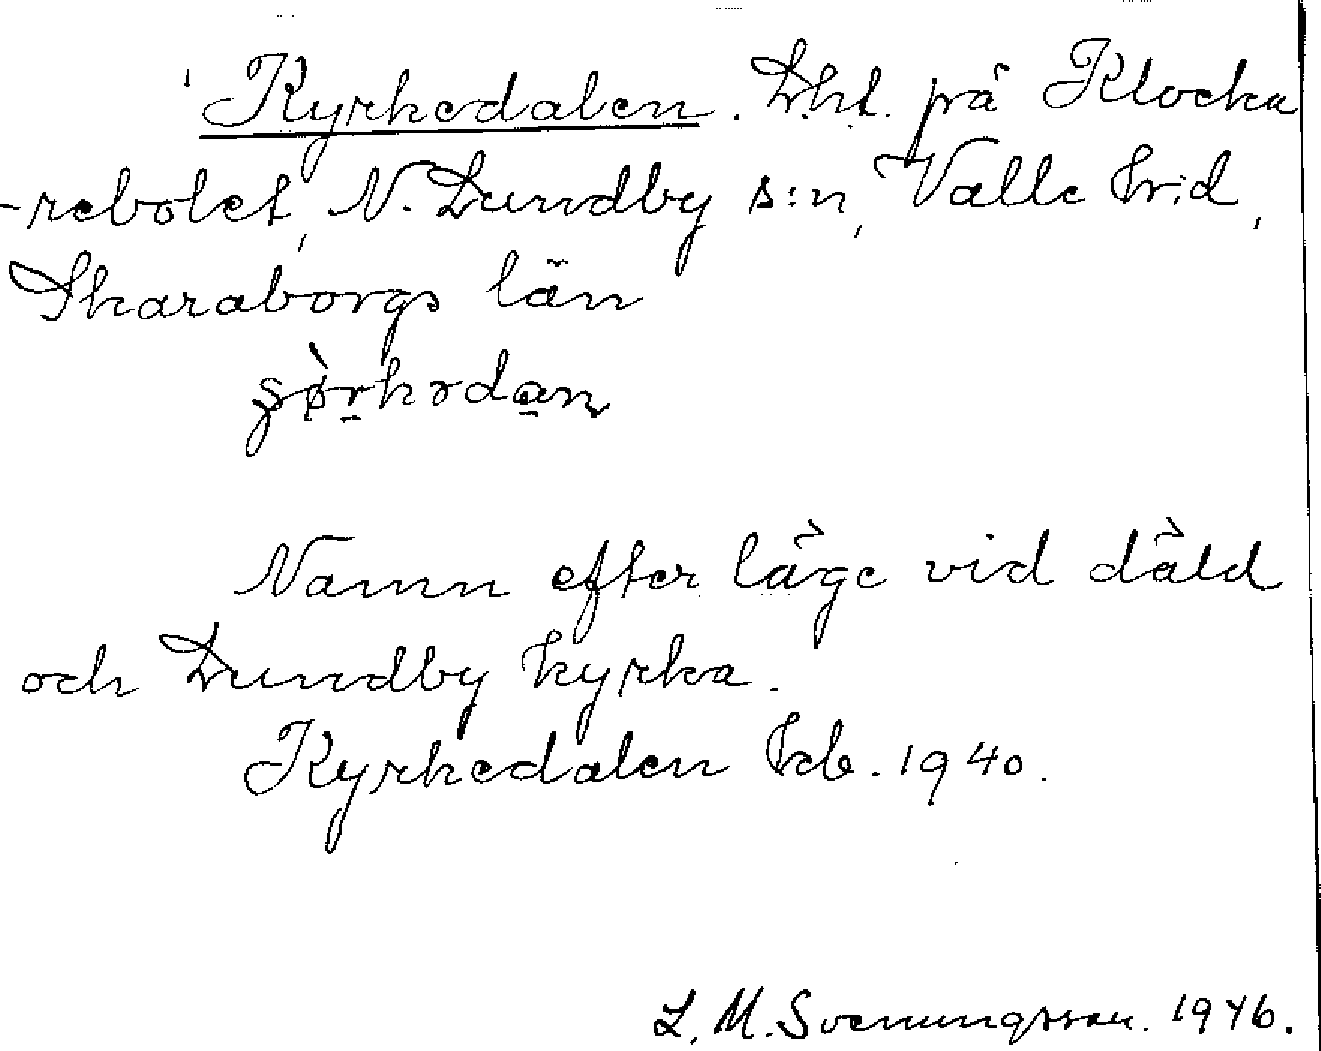 Kyrkedalen. Lht. på Klocka
-rebolet, N. Lundby s:n, Valle hrd,
Skaraborgs län
Namn efter läge vid däld
och Lundby kyrka.
Kyrkedalen kb. 1940.
L. M. Svenungsson. 1946.